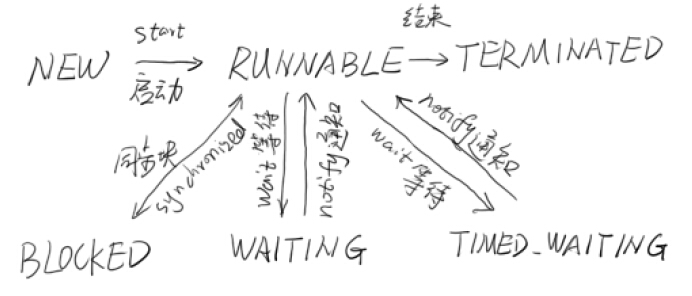 start
结束
NEW
RUNNABLE
TERMINATED
启动
同步块
synchronized
wait等待
notify通知
wait等待
notify通知
BLOCKED
WAITING
TIMED_WAITING